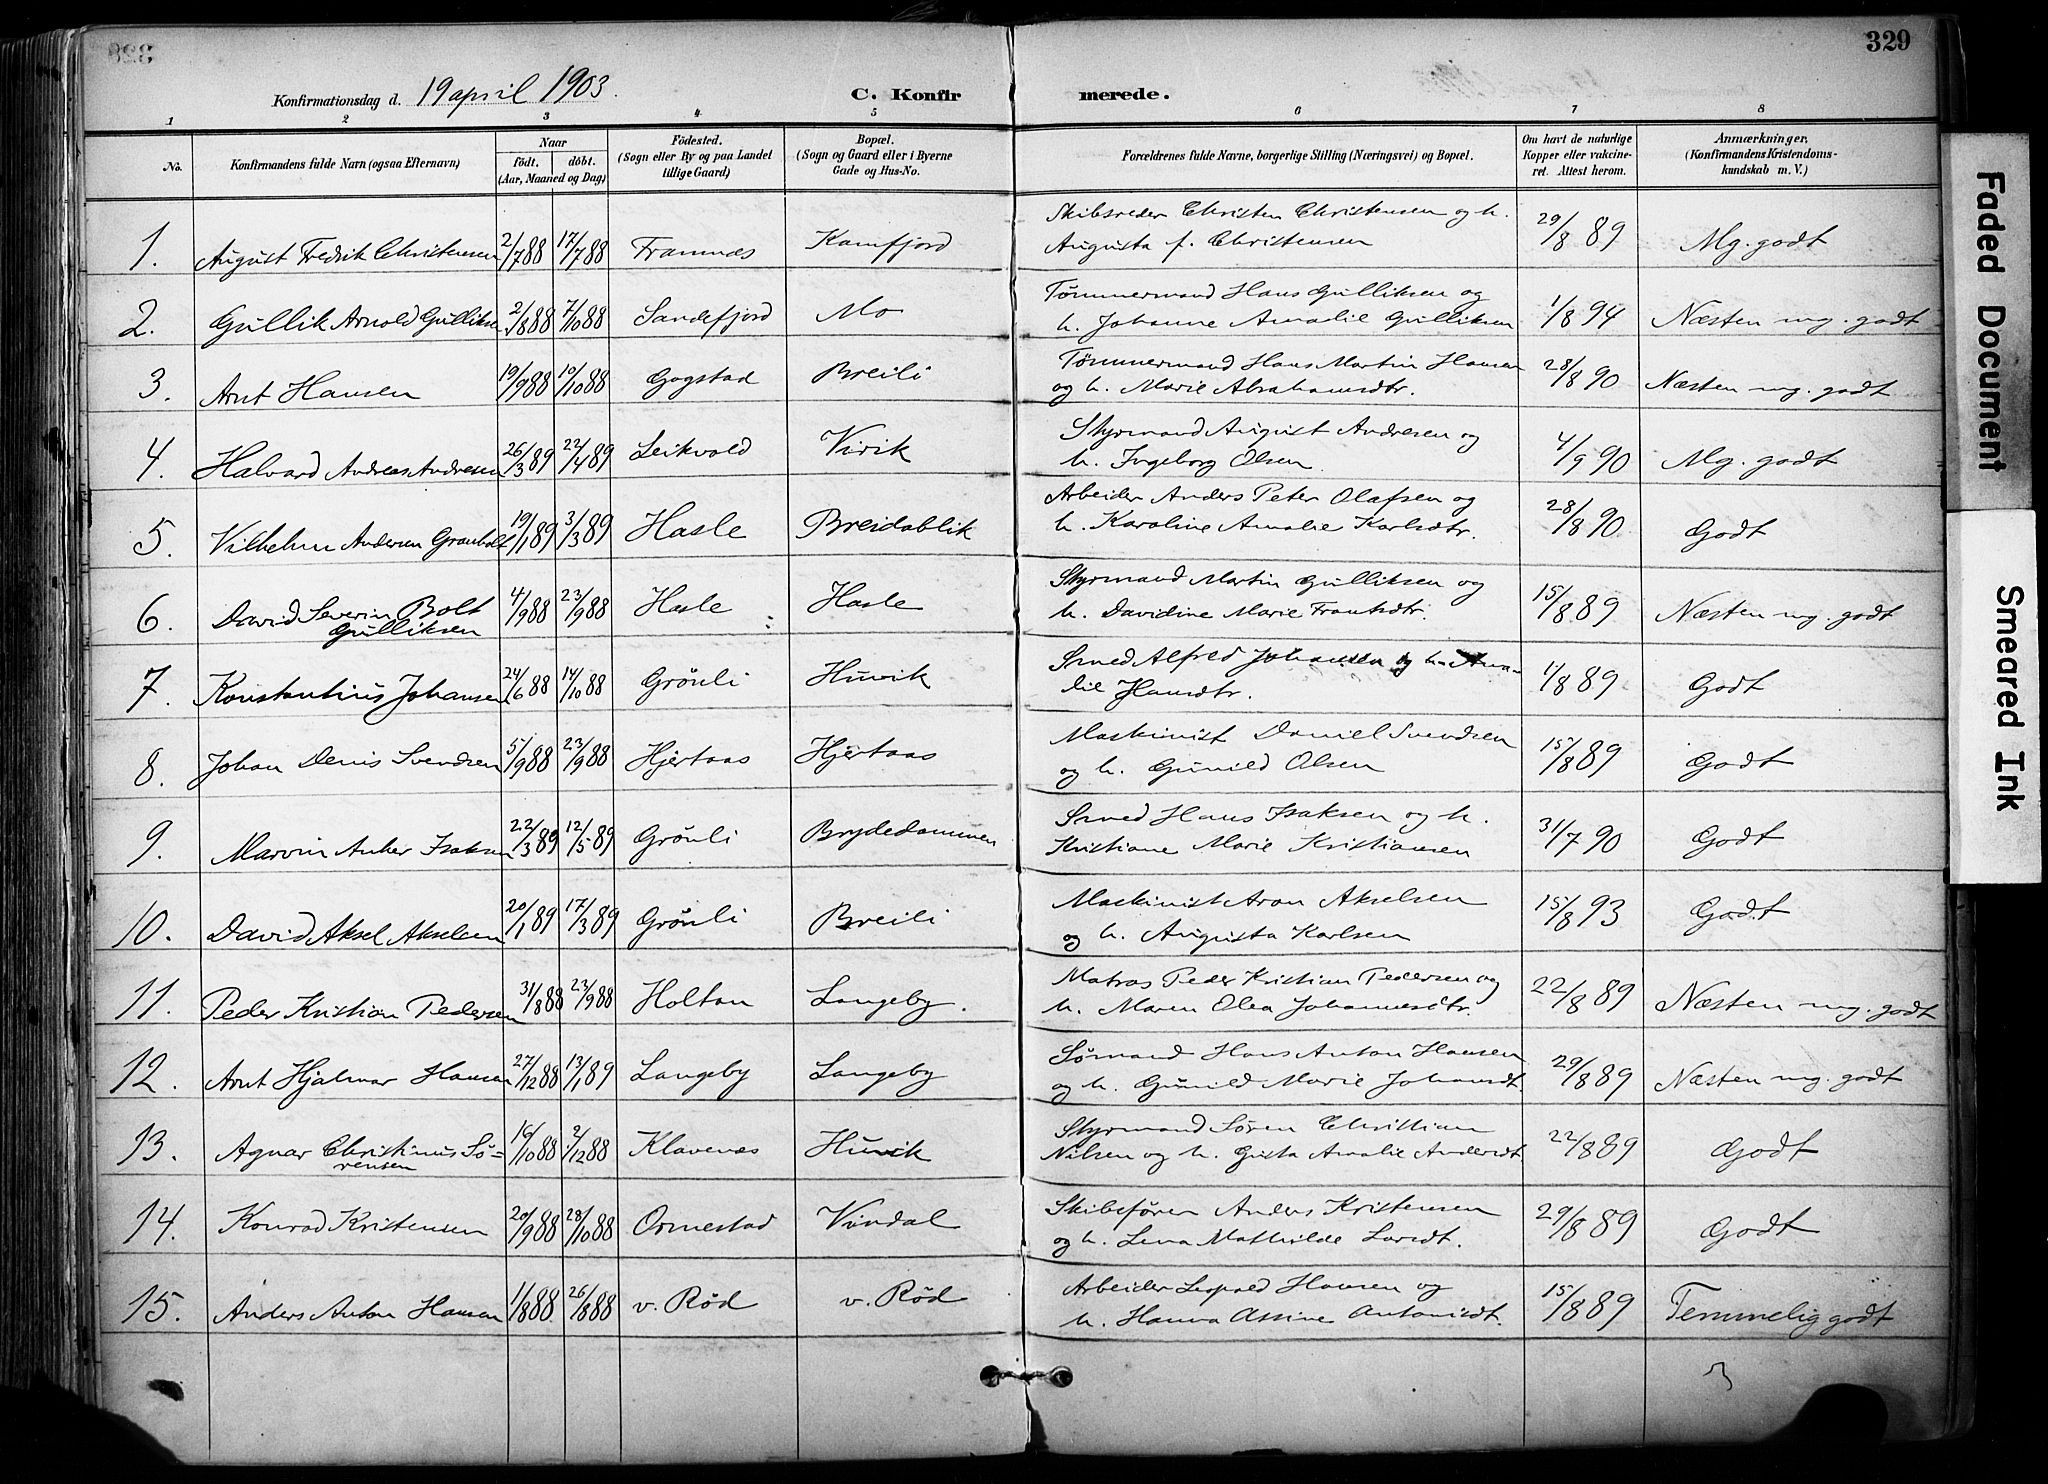 329
Konfirmationsdag d. 19 april 1903.
C. Konfirmerede.
1 2 3 4 5 6 7 8
No.
Konfirmandens fulde Navn (ogsaa Efternavn)
Naar
født. døbt.
(Aar, Maaned og Dag)
Fødested.
(Sogn eller By og paa Landet
tillige Gaard)
Bopæl.
(Sogn og Gaard eller i Byerne
Gade og Hus-No.
Forældrenes fulde Navne, borgerlige Stilling (Næringsvei) og Bopæl.
Om havt de naturlige
Kopper eller vakcine-
ret. Attest herom.
Anmærkninger.
(Konfirmandens Kristendoms-
kundskab m. V.)
1. August Fredrik Christensen 2/7 88 17/7 88 Framnæs Kamfjord Skibsreder Christen Christensen og h.
Augusta f. Christensen 29/8 89 Mg. godt
2. Gullik Arnold Gulliksen 2/8 88 7/10 88 Sandefjord Mo Tømmermand Hans Gulliksen og
h. Johanne Amalie Gulliksen 1/8 94 Næsten mg. godt
3. Arnt Hansen 19/9 88 10/10 88 Gogstad Breili Tømmermand Hans Martin Hansen
og h. Marie Abrahamsdtr. 28/8 90 Næsten mg. godt
4. Halvard Andreas Andresen 26/3 89 22/4 89 Leikvold Virik Styrmand August Andresen og
h. Ingeborg Olsen. 4/9 90 Mg. godt
5. Vilhelm Andersen Granholt 19/1 89 3/3 89 Hasle Breidablik Arbeider Anders Peter Olafsen og
h. Karoline Amalie Karlsdtr. 28/8 90 Godt
6. David Severin Bolt
Gulliksen 4/9 88 23/9 88 Hasle Hasle Styrmand Martin Gulliksen og
h. Davidine Marie Frantsdtr. 15/8 89 Næsten mg. godt
7. Konstantius Johansen 24/6 88 14/10 88 Grönli Huvik Smed Alfred Johansen og h. Ama-
lie Hansdtr. 1/8 89 Godt
8. Johan Denis Svendsen 5/9 88 23/9 88 Hjertaas Hjertaas Maskinist Daniel Svendsen
og h. Gunild Olsen 15/8 89 Godt
9. Marvin Anker Isaksen 22/3 89 12/5 89 Grönli Brydedammen Smed Hans Isaksen og h.
Kristiane Marie Kristiansen 31/7 90 Godt
10. David Aksel Akselsen 20/1 89 17/3 89 Grönli Breili Maskinist Aron Akselsen
og h. Augusta Karlsen 15/8 93 Godt
11. Peder Kristian Pedersen 31/8 88 23/9 88 Holtan Langeby. Matros Peder Kristian Pedersen og
h. Maren Elea Johannesdtr. 22/8 89 Næsten mg. godt
12. Arnt Hjalmar Hansen 27/12 88 13/1 89 Langeby Langeby Sømand Hans Anton Hansen
og h. Gunild Marie Johansdt. 29/8 89 Næsten mg. godt
13. Agnar Christinius Sö-
rensen 16/10 88 2/12 88 Klavenæs Huvik Styrmand Sören Christian
Nilsen og h. Gusta Amalie Andersdt. 22/8 89 Godt
14. Konrad Kristensen 20/9 88 28/10 88 Ormestad Vindal Skibsfören Anders Kristensen
og h. Lena Mathilde Larsdt. 29/8 89 Godt
15. Anders Anton Hansen 1/8 88 26/8 88 v. Röd v. Röd Arbeider Leopold Hansen og
h. Hanna Assine Antonisdt. 15/8 89 Temmelig godt
Faded Document
Smeared Ink